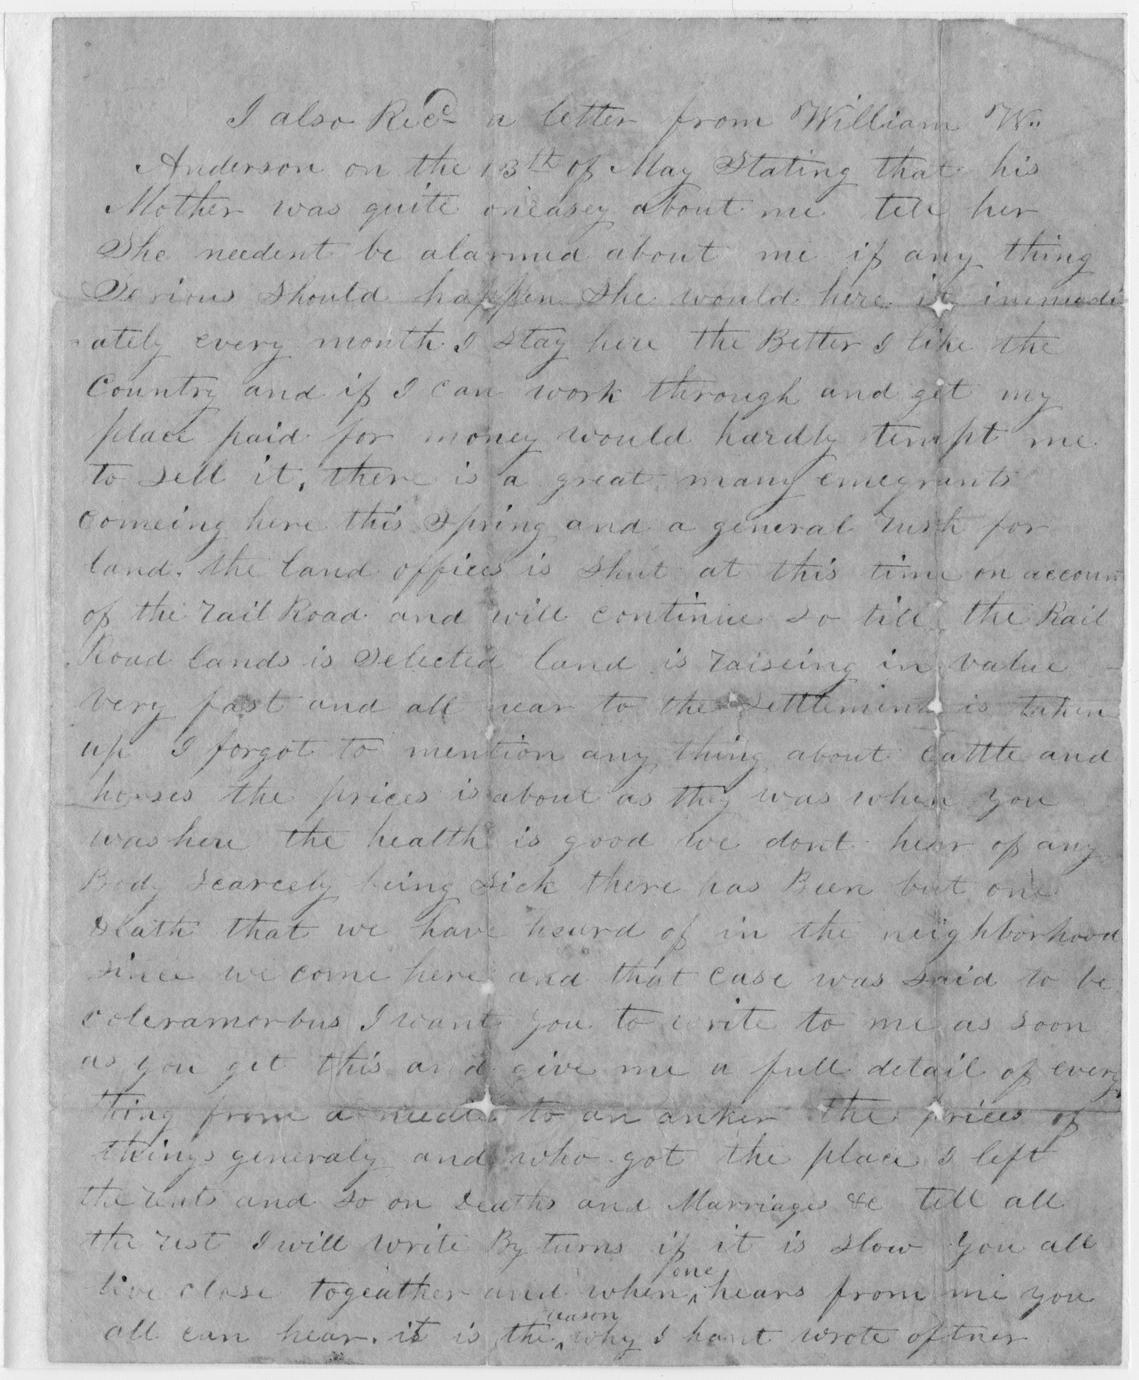 I also Recd a letter from William W..
Anderson on the 13th of May Stating that his
Mother was quite oneasey about me tell her
She needent be alarmed about me if any thing
Serious Should happen She would here it immedi
ately every month I Stay here the Better I like the
Country and if I can work through and get my
place paid for money would hardly tempt me
to Sell it, there is a great many emegrants
comeing here this Spring and a general rush for
land. the land offices is Shut at this time on account
of the rail Road and will continue so till the Rail
Road lands is Selected land is raiseing in value
very fast and all near to the Settlements is taken
up I forgot to mention any thing about Cattle and
horses the prices is about as they was when you
was here the health is good we dont hear of any
Body Scarcely being Sick there has Been but one
death that we have heard of in the neighborhood
Since we come here and that case was Said to be
coleramorbus I want you to write to me as soon
as you get this and give me a full detail of every
thing from a needle to an anker the prices of
things generaly and who got the place I left
the rents and so on Deaths and Marriages &c tell all
the rest I will write By turns if it is slow you all
live close togeather and when one hears from me you
all can hear. it is the reason why I hant wrote oftner